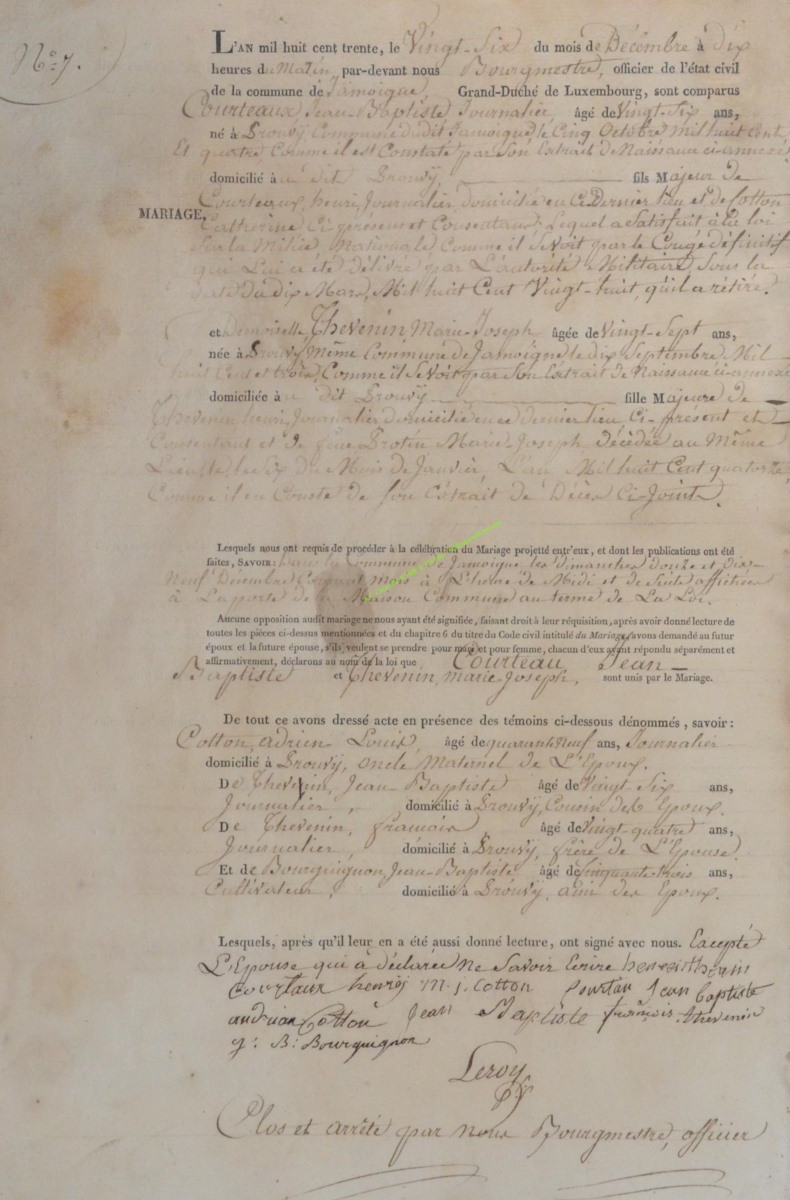 N.o 7.
L'AN mil huit cent trente, le Vingt-Six du mois de Décembre à dix
heures du Matin, par-devant nous Bourgmestre, officier de l'état civil
de la commune de Jamoigne, Grand-Duché de Luxembourg, sont comparus
Courteaux Jean Baptiste Journalier, âgé de Vingt-Six ans,
né à Prouvÿ Commune dudit Jamoigne, le Cinq Octobre Mil huit Cent
Et quatre Comme il est Constaté par Son Extrait de Naissance ci-annexé
domicilié à u dit Prouvÿ, fils Majeur de
Courteaux, henri, Journalier domicilié en Ce Dernier lieu et de Cotton
MARIAGE,
Catherine Ci présens et Consentans, Lequel a Satisfait à la loi
Sur la Milice Nationale Comme il Se Voit par le Congé définitif
qui Lui a été délivré par L'autorité Militaire, Sous la
date du dix Mars, Mil huit Cent Vingt-huit, qu'il a rétiré.
et Demoiselle Thevenin Marie-Joseph âgée de Vingt-Sept ans,
née à Prouvÿ Même Commune de Jamoigne, le dix Septembre Mil
huit Cent et trois, Comme il Se Voit par Son Extrait de Naissance ci-annexé
domiciliée à u dit Prouvÿ fille Majeure de
Thevenin henri, Journalier domicilié en ce dernier lieu Ci-présent et
Consentant et de feue Protin Marie Joseph, décédée au Même
Lieu, le Six du Mois de Janvier, L'an Mil huit Cent quatorze
Comme il en Conste de Son Extrait de Décès Ci-Joint.
Lesquels nous ont requis de procéder à la célébration du Mariage projetté entr'eux, et dont les publications ont été
faites, SAVOIR: Dans la Commune de Jamoigne les dimanches douze et dix-
Neuf Décembre Courant mois à L'heure de Midi et de Suite affichées
à La porte de la Maison Commune au terme de La Loi.
Aucune opposition audit mariage ne nous ayant été signifiée, faisant droit à leur réquisition, après avoir donné lecture de
toutes les pièces ci-dessus mentionnées et du chapitre 6 du titre du Code civil intitulé du Mariage, avons demandé au futur
époux et la future épouse, s'ils veulent se prendre pour mari et pour femme, chacun d'eux ayant répondu séparément et
affirmativement, déclarons au nom de la loi que Courteau, Jean
Baptiste et Thevenin, marie Joseph, sont unis par le Mariage.
De tout ce avons dressé acte en présence des témoins ci-dessous dénommés, savoir:
Cotton, adrien Louis, âgé de quarante neuf ans, Journalier
domicilié à Prouvÿ, oncle Maternel de L'Epoux.
De Thevenin, Jean Baptiste âgé de Vingt Six ans,
Journalier, domicilié à Prouvÿ, Cousin des Epoux.
De Thevenin, francois âgé de Vingt-quatre ans,
Journalier, domicilié à Prouvÿ, frère de L'Epouse.
Et de Bourguignon, Jean-Baptiste âgé de Cinquante trois ans,
Cultivateur, domicilié à Prouvÿ, ami des Epoux.
Lesquels, après qu'il leur en a été aussi donné lecture, ont signé avec nous. Excepté
L'Epouse qui à déclarée Ne Savoir Ecrire henri
courtaux henrÿ m. j. Cotton Courtau Jean baptiste
andrian Cotton Jean Baptiste francois thevenin
J: B: Bourguignon
Leroy
Clos et arrêté par nous Bourgmestre, officier